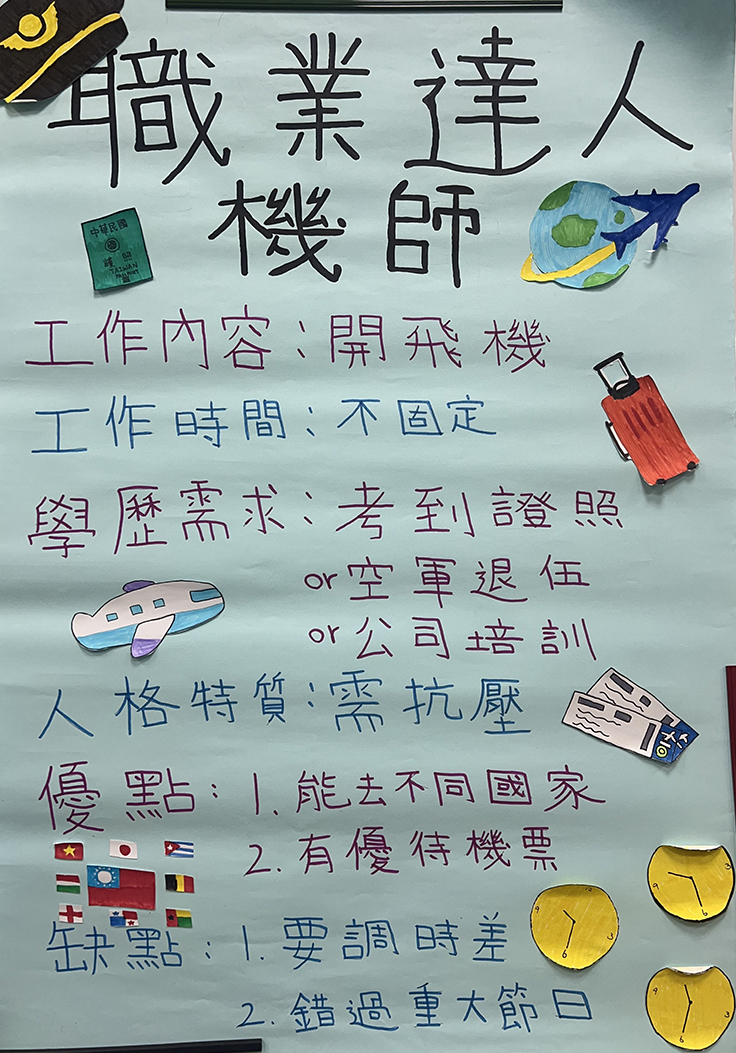 職業達人
機師
中華民國
護照
TAIWAN
PASSPORT
工作內容：開飛機
工作時間：不固定
學歷需求：考到證照
or空軍退伍
or公司培訓
人格特質：需抗壓
優點：1.能去不同國家
2.有優待機票
缺點：1.要調時差
2.錯過重大節日